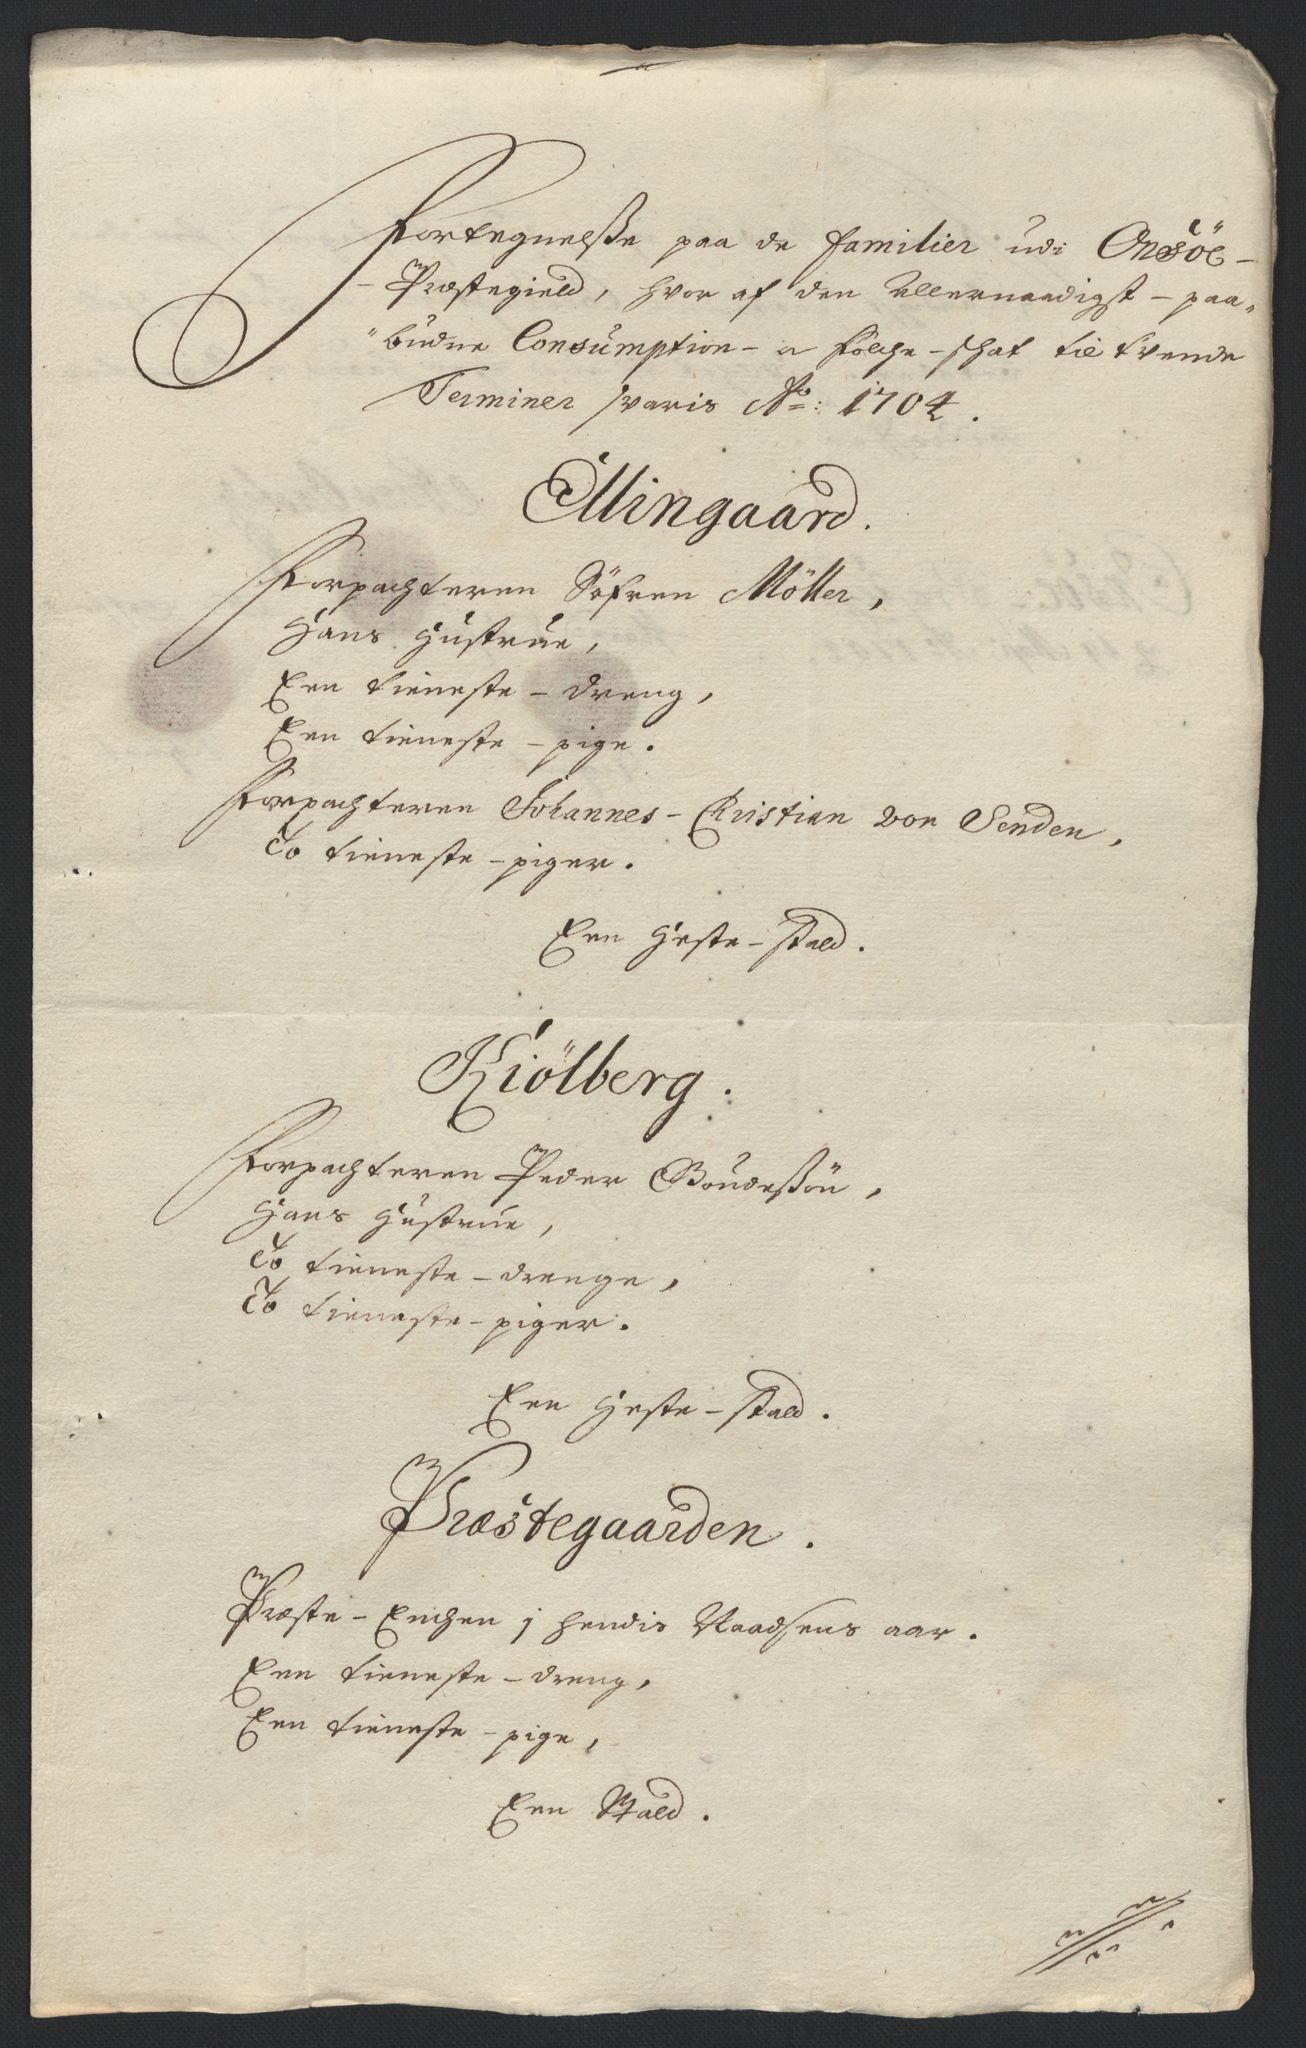 Fortegnelsse paa de familier udi Onsöe-
- Præstegield, hvor af den Allernaadigst - paa"
"budne Consumption - og folche - schat til tvende
Terminer svaris Ao: 1704.
Ellingaard.
Forpachteren Söfren Möller,
Hans Hustrue,
Een tieneste - dreng,
Een tieneste - pige.
Forpachteren Johannes - Christian von Senden,
To tieneste - piger.
Een Heste - stald.
Kiölberg.
Forpachteren Peder Goudessön,
Hans Hustrue,
To tieneste - drenge,
To tieneste - piger.
Een Heste - stald.
Præstegaarden.
Præste - Enchen j hendis Naadsens aar.
Een tieneste - dreng,
Een tieneste - pige,
Een Stald.